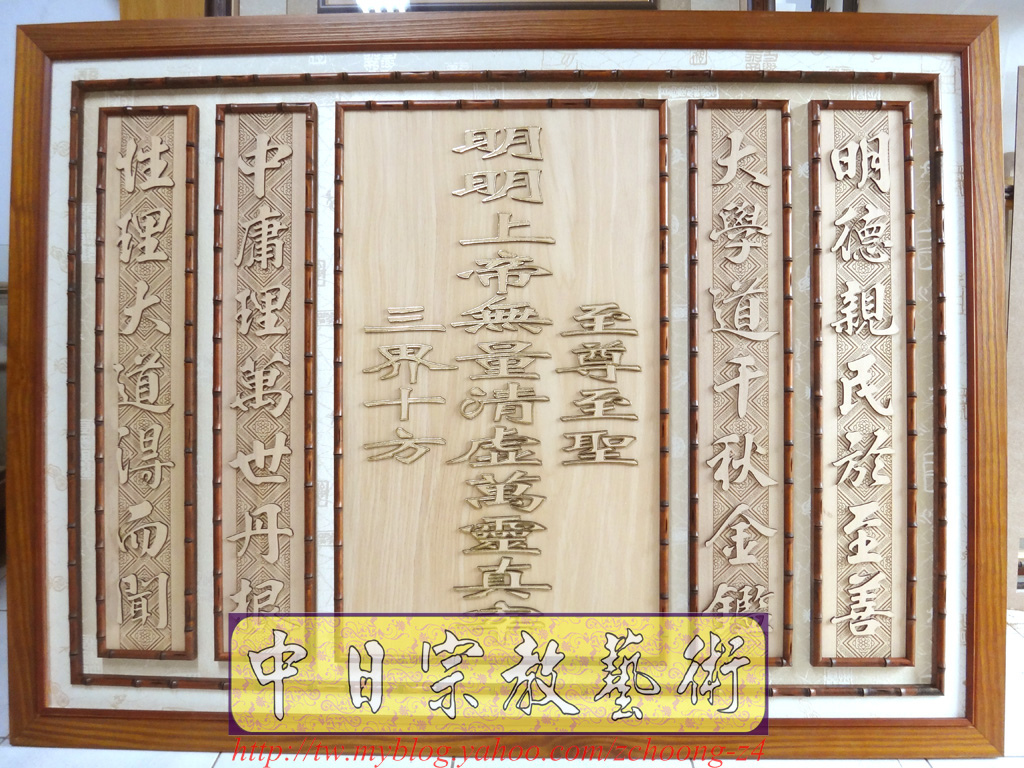 明德親民於至善
大學道千秋金鑑
至尊至聖
明明上帝無量清虛萬靈真宰
三界十方
中庸理萬世丹根
性理大道得而聞
中日宗教藝術
http://tw.myblog.yahoo.com/zchoong-z4